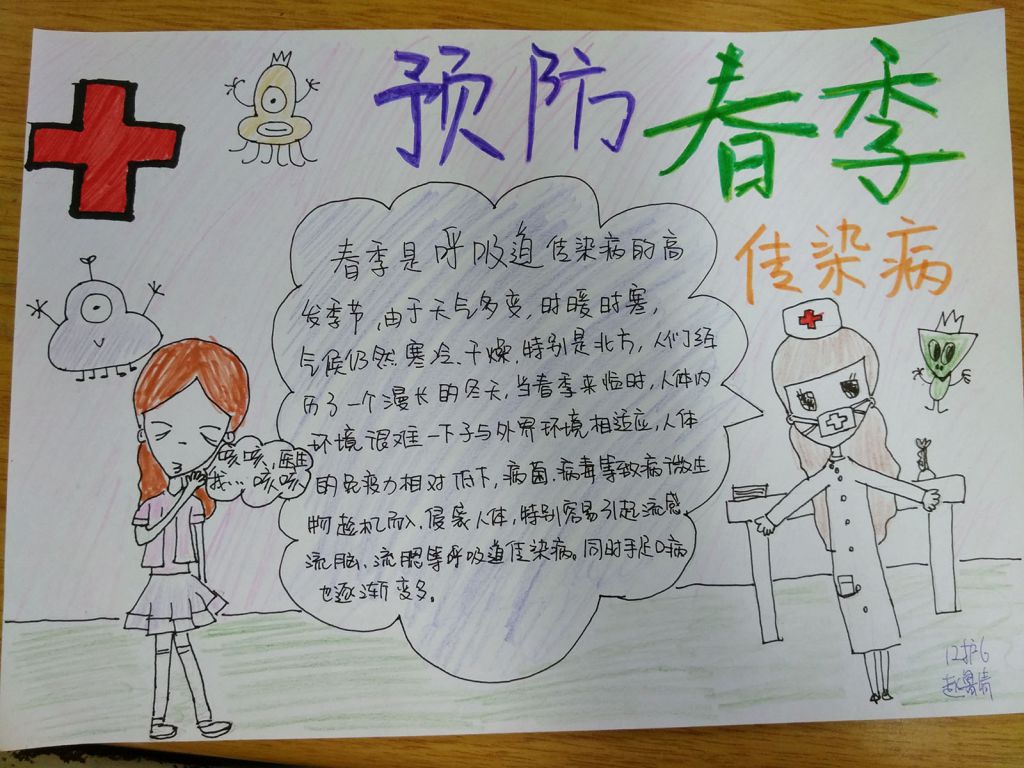 预防春季
传染病
春季是呼吸道传染病的高
发季节,由于天气多变,时暖时寒,
气候仍然寒冷、干燥.特别是北方,人们经
历了一个漫长的冬天,当春季来临时,人体内
环境很难一下子与外界环境相适应,人体
的免疫力相对低下,病菌、病毒等致病微生
物趁机而入、侵袭人体,特别容易引起流感
流脑、流腮等呼吸道传染病。同时手足口病
也逐渐变多。
咳咳,医生
我...咳咳
12护6